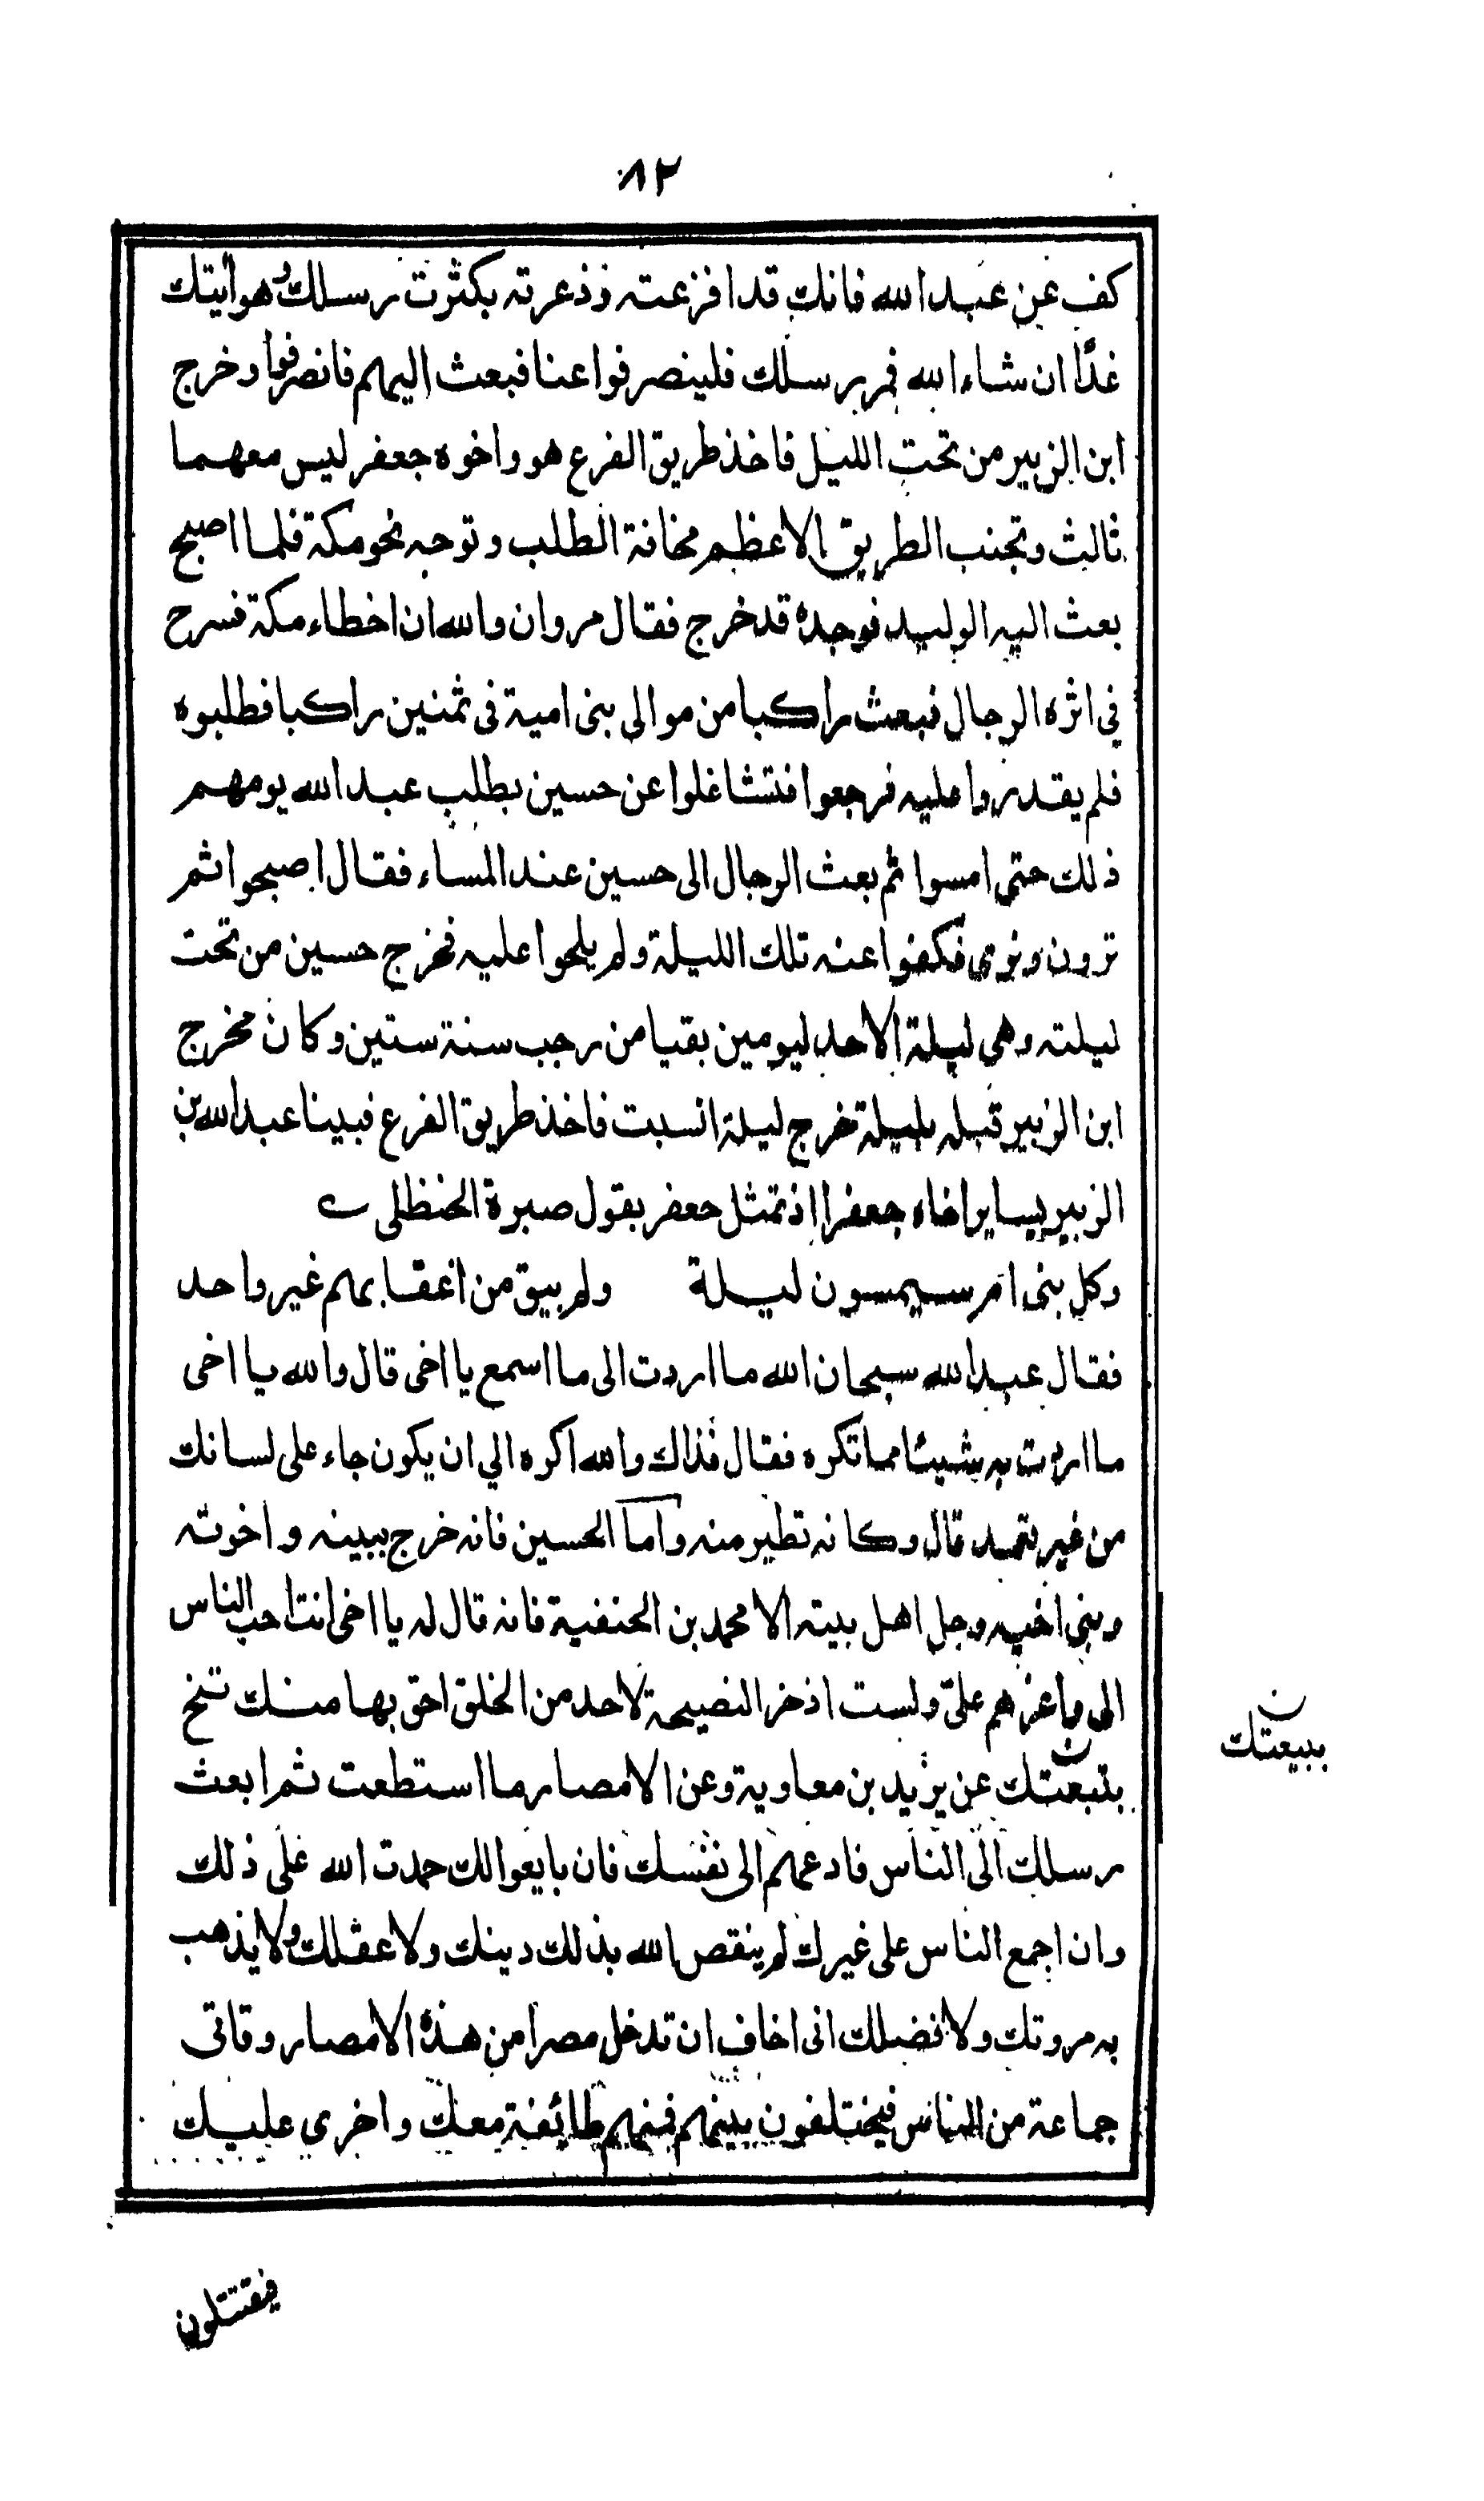 ٨٢
كف عن عبد الله فانك قد افزعته وذعرته بكثرت رسلك وهو أتيتك
غدًا ان شاء الله فمر برسلك فلينصرفوا عنا فبعث اليهم فانصرفوا وخرج
ابن الزبير من تحت الليل فاخذ طريق الفرع هو واخوه جعفر ليس معهما
ثالث وتجنب الطريق الاعظم مخافة الطلب وتوجه نحو مكة فلما اصبح
بعث اليه الوليد فوجده قد خرج فقال مروان والله ان اخطاء مكة فسرح
في اثره الرجال فبعث راكبا من موالى بنى امية فى ثمنين راكبا فطلبوه
فلم يقدروا عليه فرجعوا فتشاغلوا عن حسين بطلب عبد الله يومهم
ذلك حتى امسوا ثم بعث الرجال الى حسين عند المساء فقال اصبحوا ثم
ترون ونرى فكفوا عنه تلك الليلة ولم يلحوا عليه فخرج حسين من تحت
ليلته وهى ليلة الاحد ليومين بقيا من رجب سنة ستين وكان مخرج
ابن الزبير قبله بليلة خرج ليلة السبت فاخذ طريق الفرع فبينا عبد الله بن
الزبير يساير اخاه جعفرا اذ تمثل جعفر بقول صبرة الحنظلى
وكل بنى ام سيمسون ليلة ولم يبق من اعقابهم غير واحد
فقال عبد الله سبحان الله ما اردت الى ما اسمع يا اخى قال والله يا اخى
ما اردت به شيئا مما تكره فقال فذاك والله اكره الي ان يكون جاء على لسانك
من غير تعمد قال وكانه تطير منه واما الحسين فانه خرج ببينه واخوته
وبنى اخيه وجل اهل بيته الا محمد بن الحنفية فانه قال له يا اخى انت احب الناس
الى واعزهم علىّ ولست اذخر النصيحة لاحد من الخلق احق بها منك تنخ
بتبعتك عن يزيد بن معاوية وعن الامصار ما استطعت ثم ابعث
ن ببيعتك
رسلك الى الناس فادعهم الى نفسك فان بايعوا لك حمدت الله على ذلك
وان اجمع الناس على غيرك لم ينقص الله بذلك دينك ولا عقلك ولا يذهب
به مروتك ولا فضلك انى اخاف ان تدخل مصرا من هذه الامصار وقاتى
جماعة من الناس فيختلفون بينهم فمنهم طائفة معك واخرى عليك
فيقتتلون